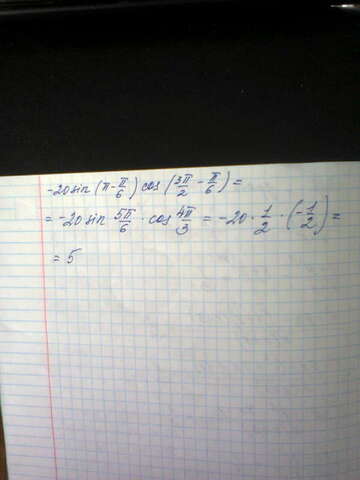 -20sin(π-π/6)cos(3π/2-π/6)=
=-20sin 5π/6·cos 4π/3=-20·1/2·(-1/2)=
=5